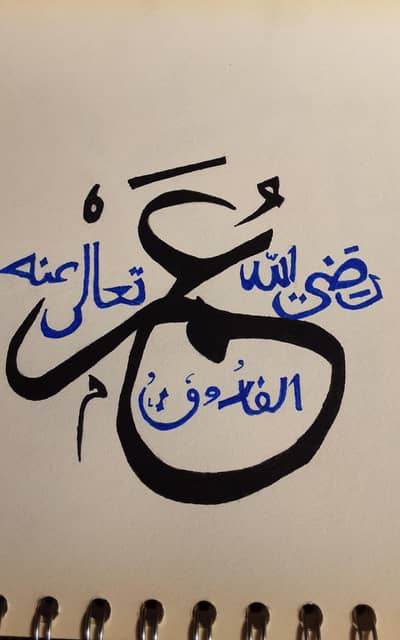 عُمَر
الفاروق
رَضي الله
تعالى عنه